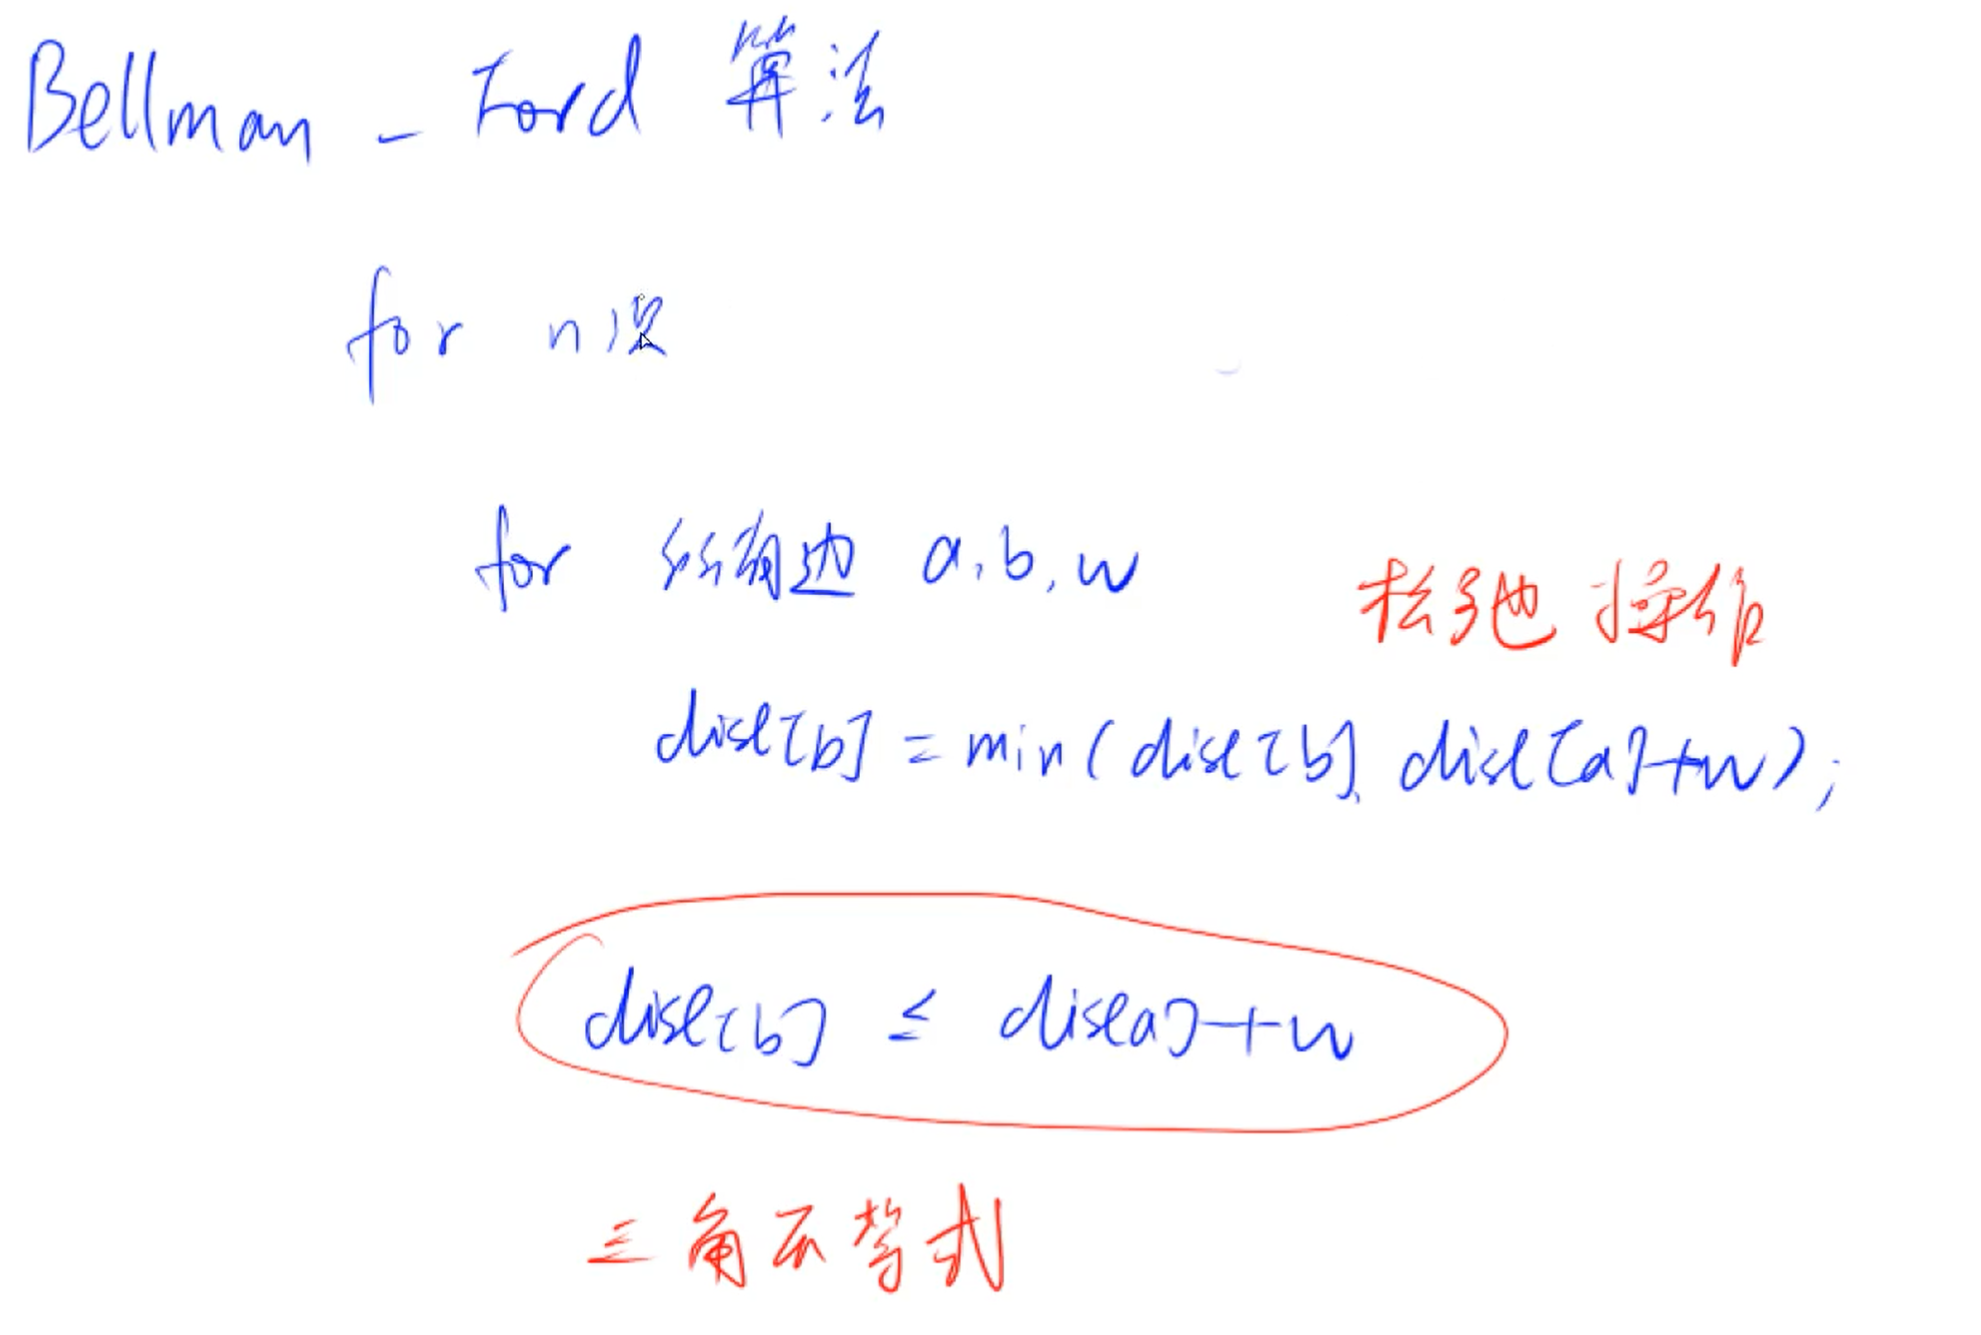 Bellman - Ford 算法
for n次
for 所有边 a, b, w
松弛 操作
dist[b] = min(dist[b], dist[a]+w);
dist[b] ≤ dist[a]+w
三角不等式